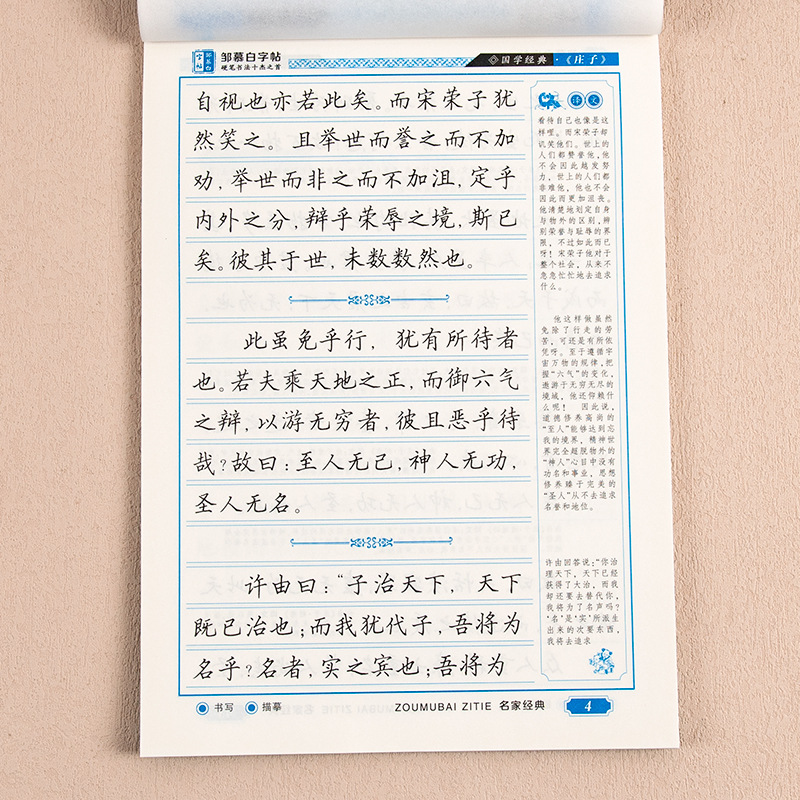 字帖
邹慕白
邹慕白字帖
硬笔书法十杰之首
国学经典·《庄子》
自视也亦若此矣。而宋荣子犹
然笑之。且举世而誉之而不加
劝,举世而非之而不加沮,定乎
内外之分,辩乎荣辱之境,斯已
矣。彼其于世,未数数然也。
此虽免乎行, 犹有所待者
也。若夫乘天地之正,而御六气
之辩,以游无穷者,彼且恶乎待
哉?故曰:至人无己,神人无功,
圣人无名。
许由曰:“子治天下, 天下
既已治也;而我犹代子,吾将为
名乎?名者,实之宾也;吾将为
译文
看待自己也像是这
样哩。而宋荣子却
讥笑他们。世上的
人们都赞誉他,他
不会因此越发努
力,世上的人们都
非难他,他也不会
因此而更加沮丧。
他清楚地划定自身
与物外的区别,辨
别荣誉与耻辱的界
限,不过如此而已
呀!宋荣子他对于
整个社会,从来不
急急忙忙地去追求
什么。
他这样做虽然
免除了行走的劳
苦,可还是有所依
凭呀。至于遵循宇
宙万物的规律,把
握“六气”的变化,
遨游于无穷无尽的
境域,他还仰赖什
么呢! 因此说,
道德修养高尚的
“至人”能够达到忘
我的境界,精神世
界完全超脱物外的
“神人”心目中没有
功名和事业,思想
修养臻于完美的
“圣人”从不去追求
名誉和地位。
许由回答说:“你治
理天下,天下已经
获得了大治,而我
却还要去替代你,
我将为了名声吗?
‘名’是‘实’所派生
出来的次要东西,
我将去追求
书写 描摹 ZOUMUBAI ZITIE 名家经典 4